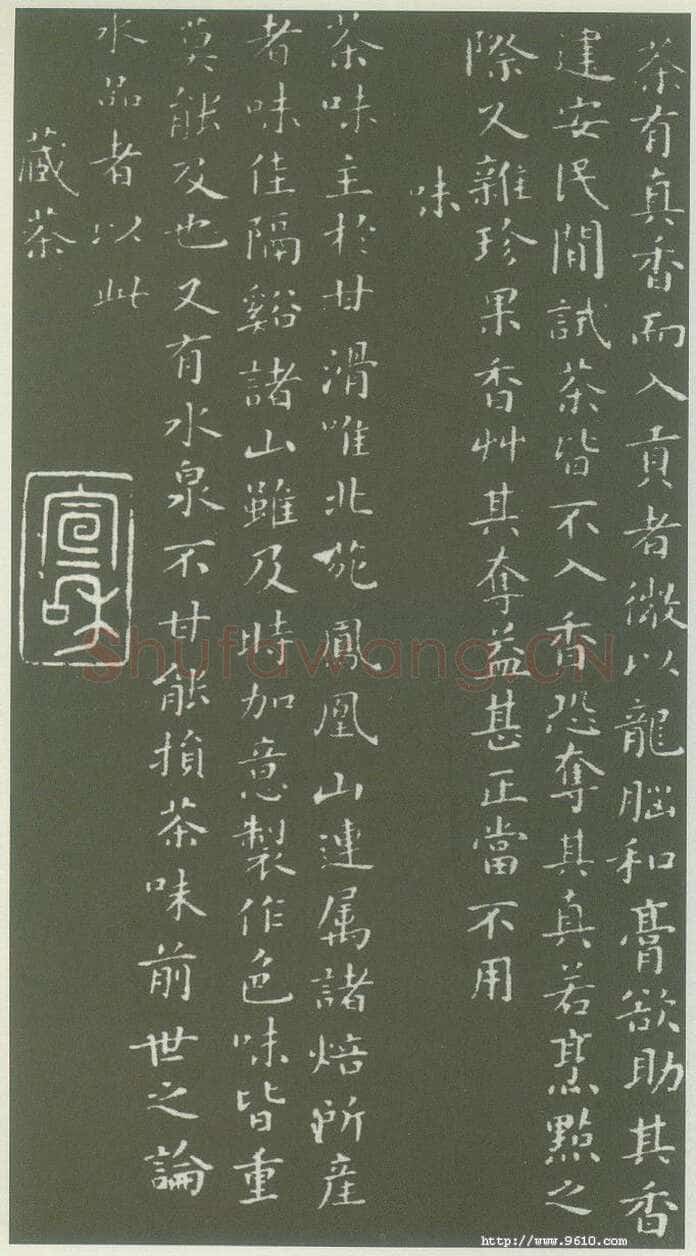 茶有真香而入貢者微以龍腦和膏欲助其香
建安民間試茶皆不入香恐奪其真若烹點之
際又雜珍果香艸其奪益甚正當不用
味
茶味主於甘滑唯北苑鳳凰山連屬諸焙所產
者味佳隔谿諸山雖及時加意製作色味皆重
莫能及也又有水泉不甘能損茶味前世之論
水品者以此
藏茶
宣和
Shufawang.CN
http://www.9610.com